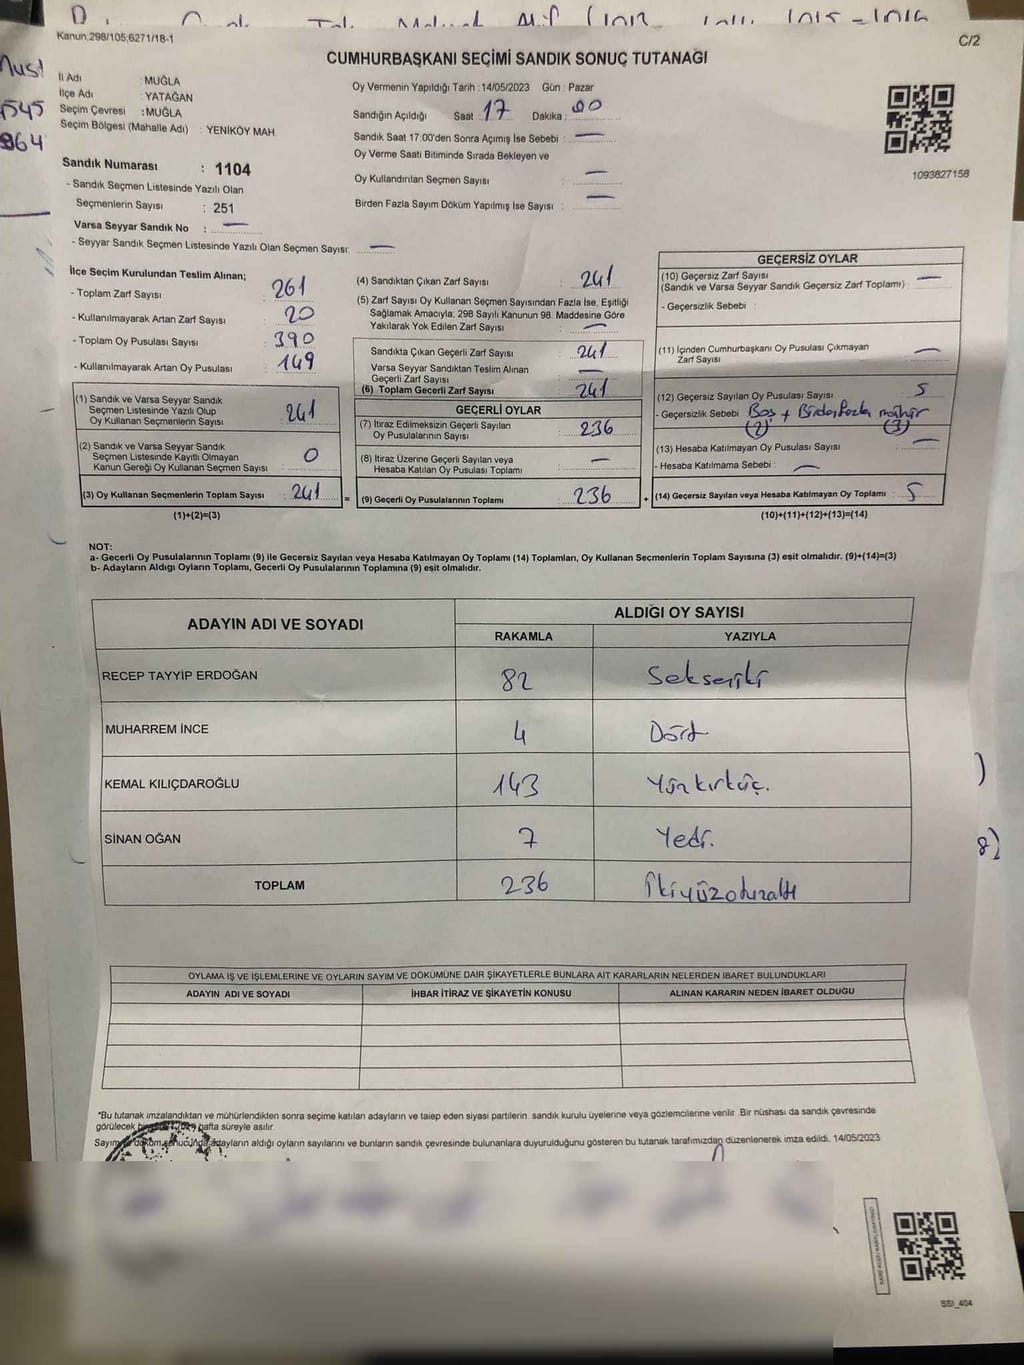 Kanun.298/105;6271/18-1
C/2
CUMHURBAŞKANI SEÇİMİ SANDIK SONUÇ TUTANAĞI
İl Adı : MUĞLA
İlçe Adı : YATAĞAN
Seçim Çevresi : MUĞLA
Seçim Bölgesi (Mahalle Adı) : YENİKÖY MAH.
Oy Vermenin Yapıldığı Tarih : 14/05/2023 Gün : Pazar
Sandığın Açıldığı Saat : 17 Dakika : 00
Sandık Saat 17:00'den Sonra Açımış İse Sebebi : —
Oy Verme Saati Bitiminde Sırada Bekleyen ve
Oy Kullandırılan Seçmen Sayısı : —
Birden Fazla Sayım Döküm Yapılmış İse Sayısı : —
1093827158
Sandık Numarası : 1104
- Sandık Seçmen Listesinde Yazılı Olan
Seçmenlerin Sayısı : 251
Varsa Seyyar Sandık No : —
- Seyyar Sandık Seçmen Listesinde Yazılı Olan Seçmen Sayısı: —
İlçe Seçim Kurulundan Teslim Alınan;
- Toplam Zarf Sayısı : 261
- Kullanılmayarak Artan Zarf Sayısı : 20
- Toplam Oy Pusulası Sayısı : 390
- Kullanılmayarak Artan Oy Pusulası : 149
(1) Sandık ve Varsa Seyyar Sandık
Seçmen Listesinde Yazılı Olup
Oy Kullanan Seçmenlerin Sayısı : 241
(2) Sandık ve Varsa Seyyar Sandık
Seçmen Listesinde Kayıtlı Olmayan
Kanun Gereği Oy Kullanan Seçmen Sayısı : 0
(3) Oy Kullanan Seçmenlerin Toplam Sayısı : 241 =
(1)+(2)=(3)
(4) Sandıktan Çıkan Zarf Sayısı : 241
(5) Zarf Sayısı Oy Kullanan Seçmen Sayısından Fazla İse, Eşitliği
Sağlamak Amacıyla; 298 Sayılı Kanunun 98. Maddesine Göre
Yakılarak Yok Edilen Zarf Sayısı : —
Sandıkta Çıkan Geçerli Zarf Sayısı : 241
Varsa Seyyar Sandıktan Teslim Alınan
Geçerli Zarf Sayısı : —
(6) Toplam Gecerli Zarf Sayısı : 241
GEÇERLİ OYLAR
(7) İtiraz Edilmeksizin Geçerli Sayılan
Oy Pusulalarının Sayısı : 236
(8) İtiraz Üzerine Geçerli Sayılan veya
Hesaba Katılan Oy Pusulası Toplamı : —
(9) Geçerli Oy Pusulalarının Toplamı : 236 +
GEÇERSİZ OYLAR
(10) Geçersiz Zarf Sayısı
(Sandık ve Varsa Seyyar Sandık Geçersiz Zarf Toplamı) : —
- Geçersizlik Sebebi :
(11) İçinden Cumhurbaşkanı Oy Pusulası Çıkmayan
Zarf Sayısı : —
(12) Geçersiz Sayılan Oy Pusulası Sayısı : 5
- Geçersizlik Sebebi : Boş + Birden fazla mühür
(2) (3)
(13) Hesaba Katılmayan Oy Pusulası Sayısı : —
- Hesaba Katılmama Sebebi : —
(14) Geçersiz Sayılan veya Hesaba Katılmayan Oy Toplamı : 5
(10)+(11)+(12)+(13)=(14)
NOT:
a- Gecerli Oy Pusulalarının Toplamı (9) ile Gecersiz Sayılan veya Hesaba Katılmayan Oy Toplamı (14) Toplamları, Oy Kullanan Seçmenlerin Toplam Sayısına (3) esit olmalıdır. (9)+(14)=(3)
b- Adayların Aldığı Oyların Toplamı, Geçerli Oy Pusulalarının Toplamına (9) esit olmalıdır.
ADAYIN ADI VE SOYADI ALDIĞI OY SAYISI
RAKAMLA YAZIYLA
RECEP TAYYİP ERDOĞAN 82 Sekseniki
MUHARREM İNCE 4 Dört
KEMAL KILIÇDAROĞLU 143 Yüzkırküç.
SİNAN OĞAN 7 Yedi.
TOPLAM 236 İkiyüzotuzaltı
OYLAMA İŞ VE İŞLEMLERİNE VE OYLARIN SAYIM VE DÖKÜMÜNE DAİR ŞİKAYETLERLE BUNLARA AİT KARARLARIN NELERDEN İBARET BULUNDUKLARI
ADAYIN ADI VE SOYADI İHBAR İTİRAZ VE ŞİKAYETİN KONUSU ALINAN KARARIN NEDEN İBARET OLDUĞU
*Bu tutanak imzalandıktan ve mühürlendikten sonra seçime katılan adayların ve talep eden siyasi partilerin sandık kurulu üyelerine veya gözlemcilerine verilir .Bir nüshası da sandık çevresinde
görülecek hafta süreyle asılır.
Sayım sonucunda adayların aldığı oyların sayılarını ve bunların sandık çevresinde bulunanlara duyurulduğunu gösteren bu tutanak tarafımızdan düzenlenerek imza edildi. 14/05/2023
SSI_404